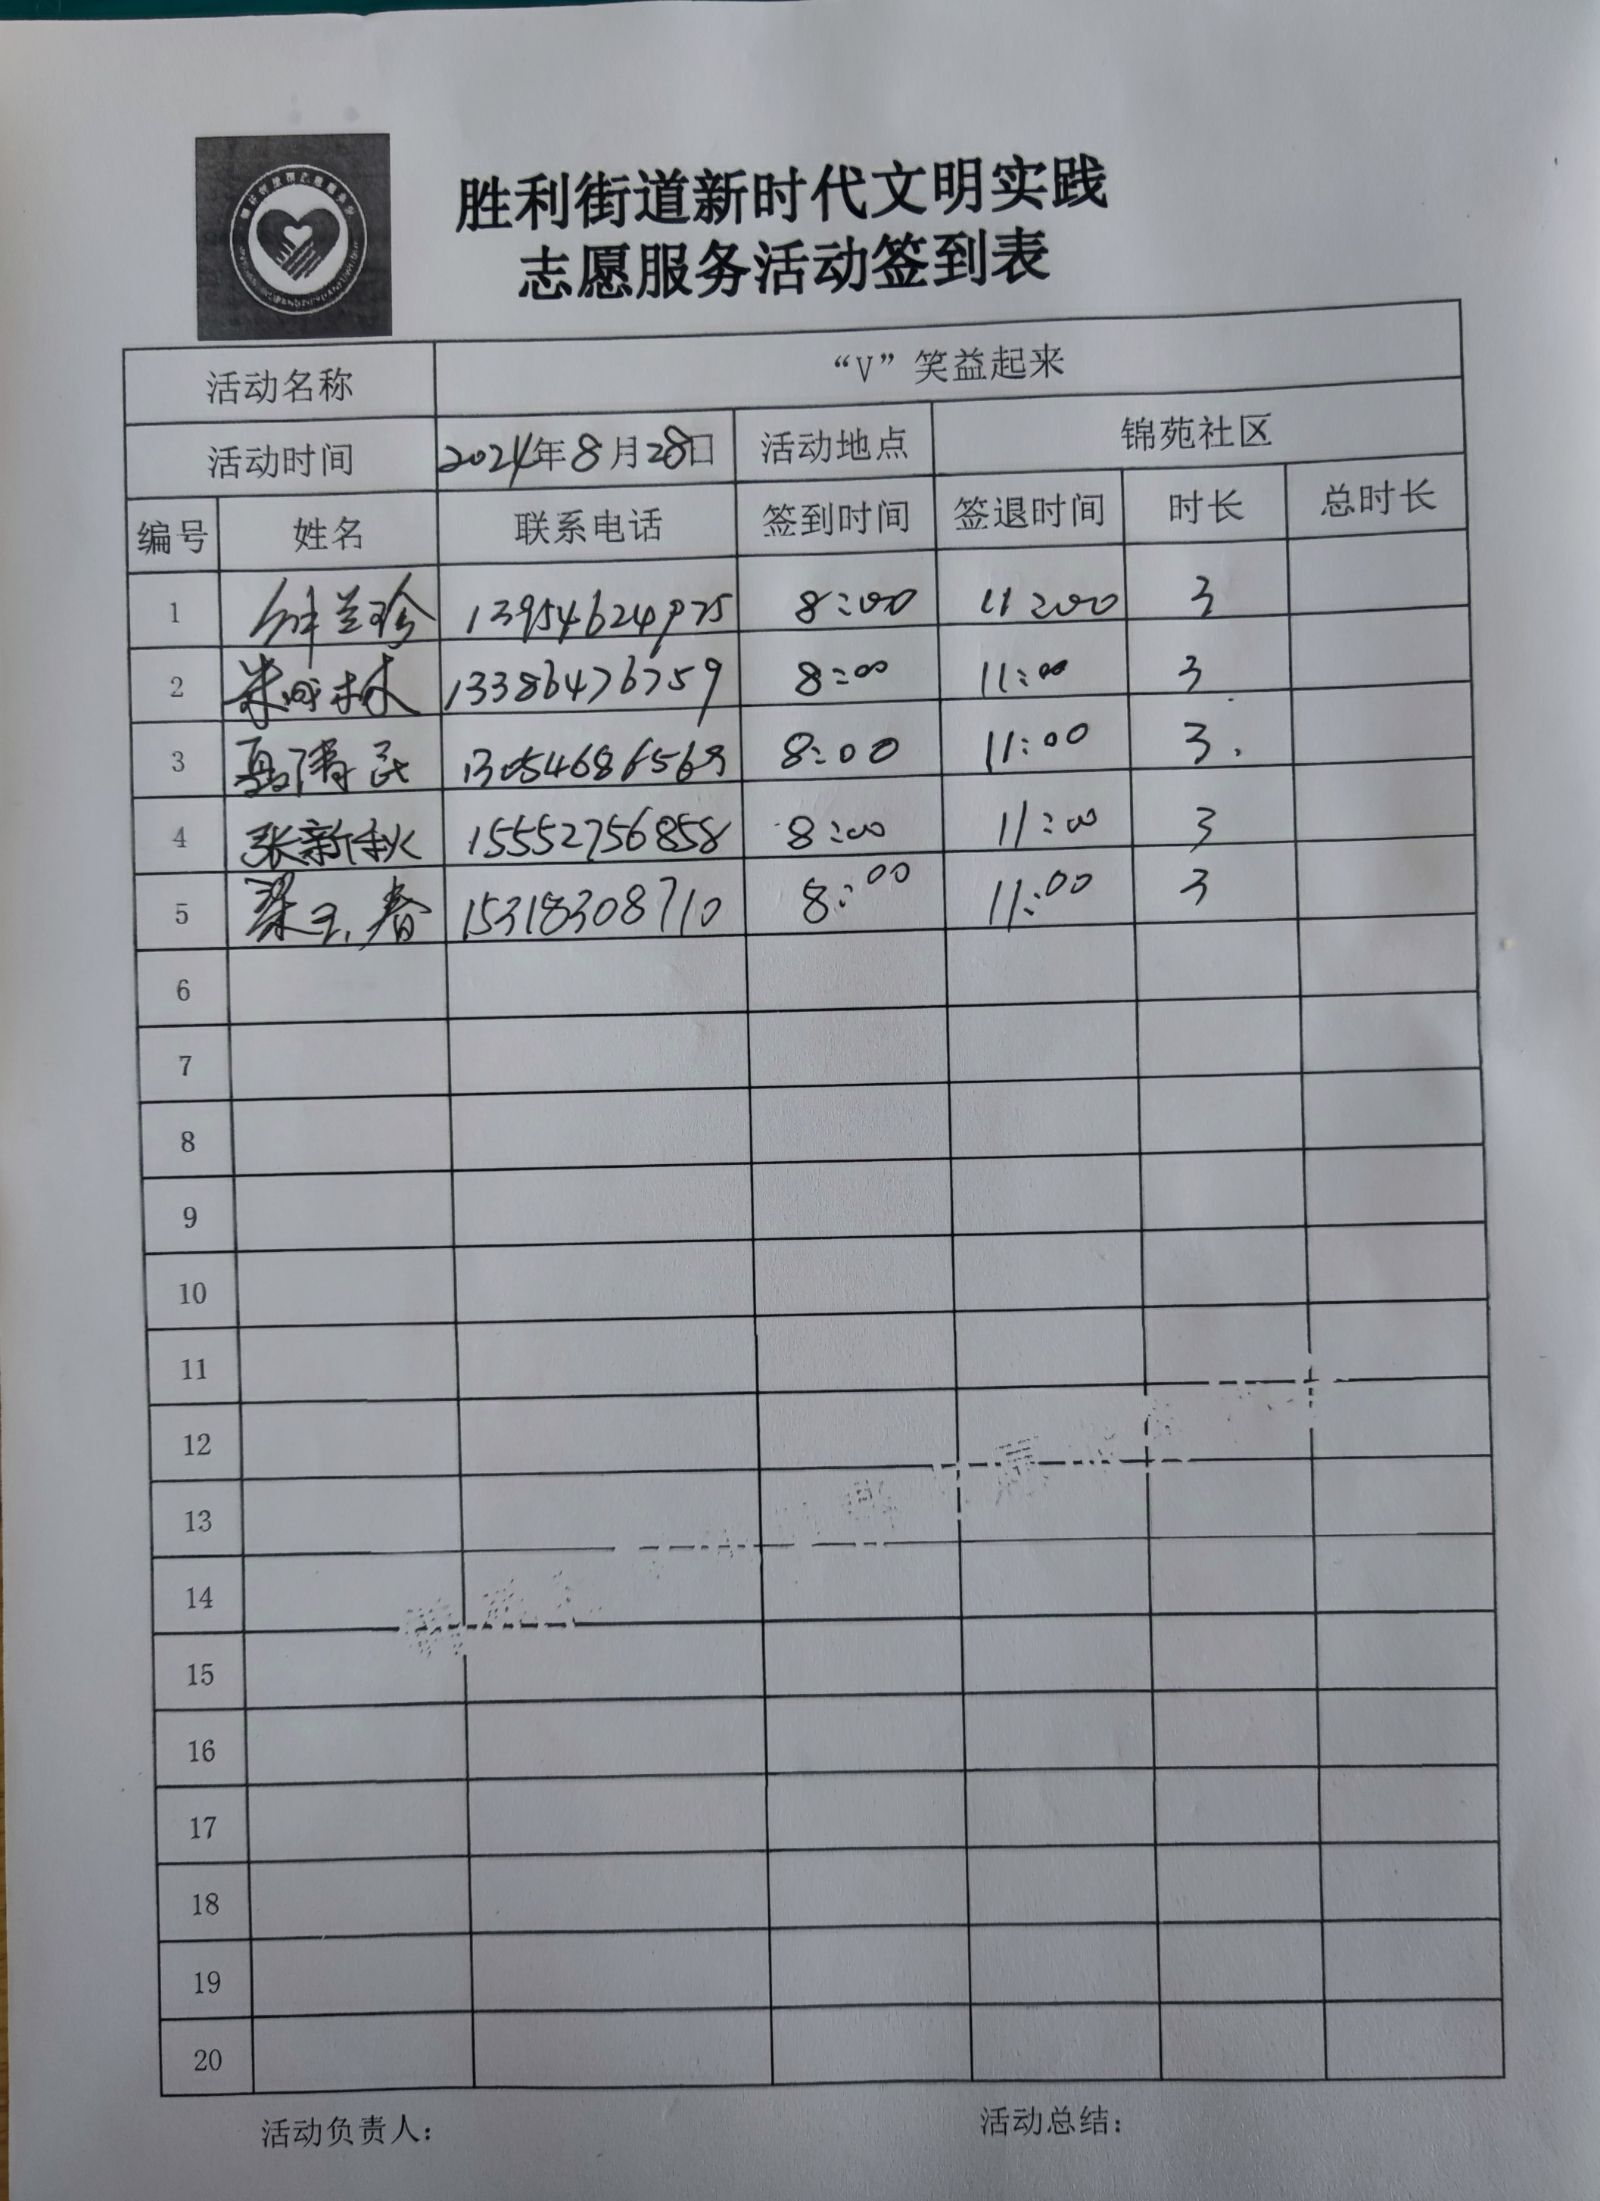 胜利街道新时代文明实践
志愿服务活动签到表
活动名称 “V”笑益起来
活动时间 2024年8月28日 活动地点 锦苑社区
编号 姓名 联系电话 签到时间 签退时间 时长 总时长
1 钟兰珍 13954624975 8:00 11:00 3
2 13386476759 8:00 11:00 3
3 13054686569 8:00 11:00 3.
4 张新秋 15552756858 8:00 11:00 3
5 梁玉春 15318308710 8:00 11:00 3
6
7
8
9
10
11
12
13
14
15
16
17
18
19
20
活动负责人: 活动总结: